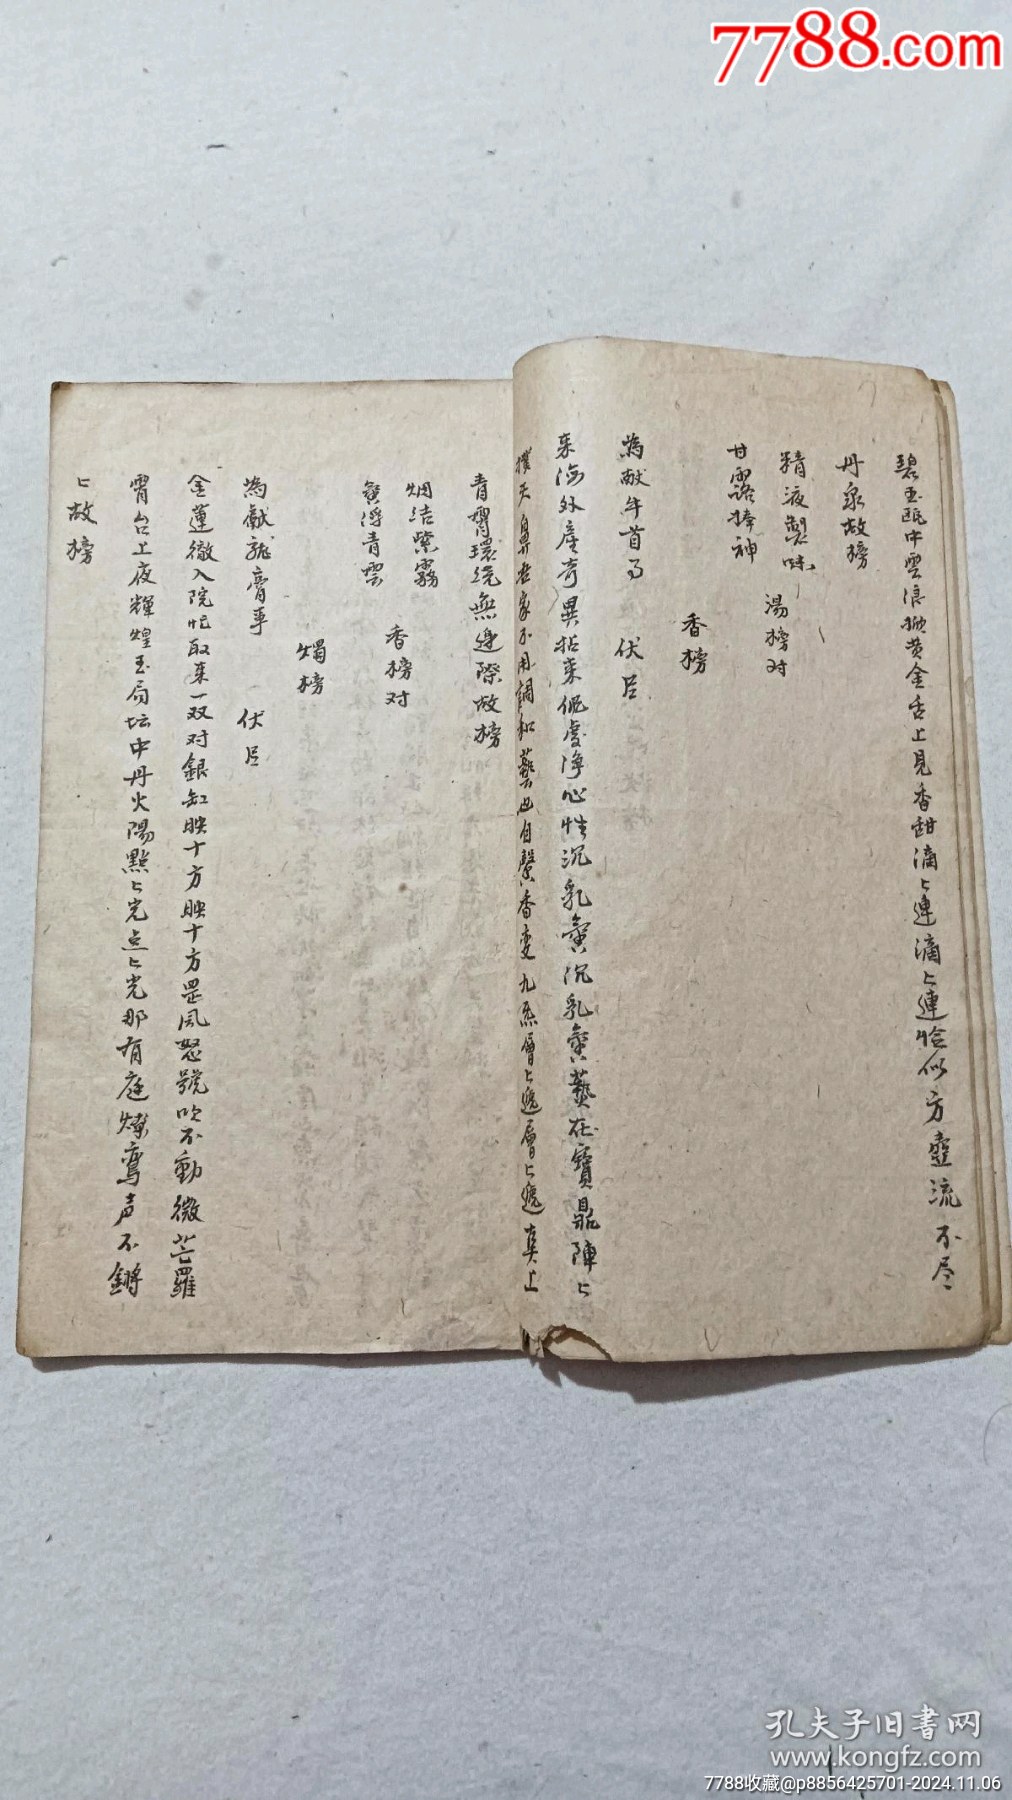 7788.com
碧玉甌中雲浪撇黄金舌上見香甜滴〻連滴〻連恰似方壺流不尽
丹泉故榜
精液製味
湯榜対
甘露捧神
香榜
為献牛首事 伏以
来海外産奇異拈来伲處净心性沉乳賔沉乳賔爇在寶鼎陣〻
撲天鼻在家不用調和爇也自馨香变九炁層〻遶層〻遶真上
青霄環繞無邊際故榜
烟結紫霧
香榜对
賔浮青雲
燭榜
為獻龍膏事 伏以
金蓮徹入院忙取来一双对銀缸映十方映十方罡風怒號吹不動微茫羅
霄台上夜輝煌玉局坛中丹火陽點〻光点〻光那有庭燎鸞声不鏘
〻故榜
孔夫子旧书网
www.kongfz.com
7788收藏@p8856425701-2024.11.06